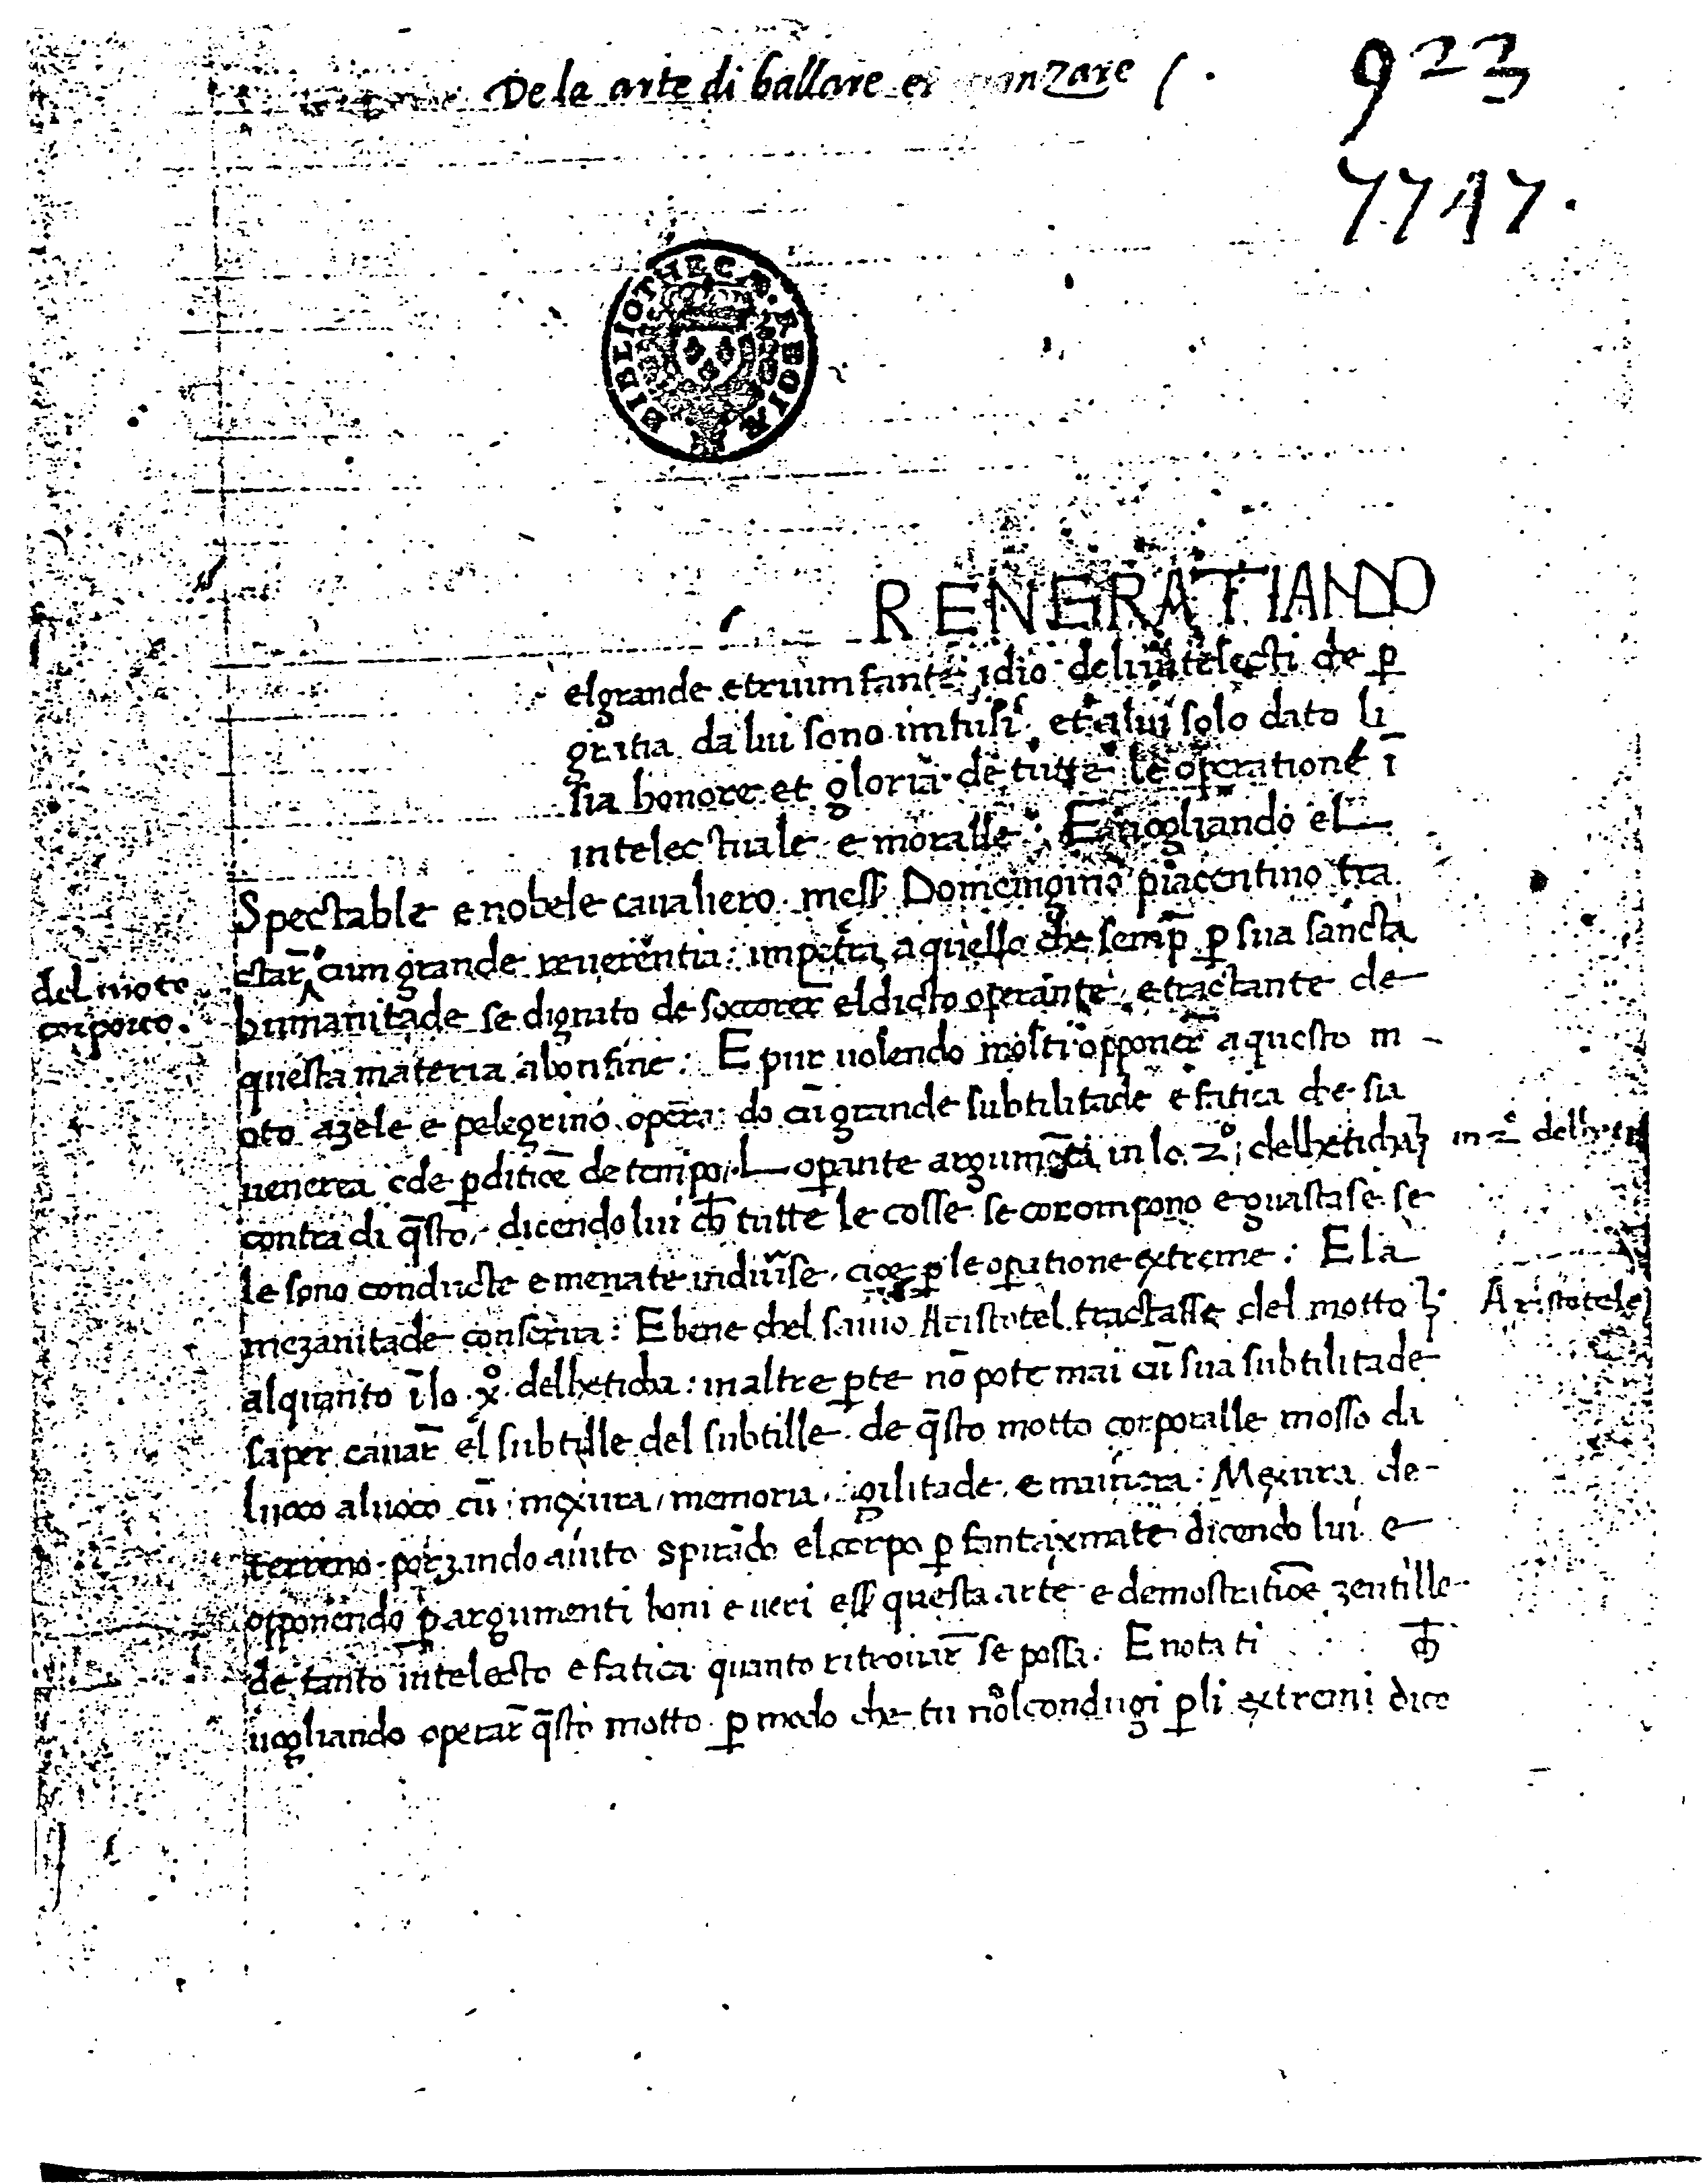 De la arte di ballare et danzare
923
7747.
BIBLIOTHECAE REGIAE
RENGRATIANDO
el grande e truimfante idio deli intelecti che p̱
gratia da lui sono imfusi et a lui solo dato li
sia honore et gloria de tutte le operatione ī
intelectuale e moralle : E vogliando el
Spectable e nobele cavaliero mess Domeingino piacentino tra
ctar̄ cum grande reverentia : impetra a quello che semp̱ p̱ sua sancta
del moto
corporeo.
humanitade se dignato de soccorer̄ el dicto operante e tractante de
questa materia a bon fine : E pur volendo molti opponer̄ a questo m
oto azele e pelegrino opera do cū grande subtilitade e fatica che sia
venerea e de p̱ditiōe de tempo. L op̱ante argumēta in lo 2° delheticha
in 2° del
contra di q̄sto, dicendo lui ch̄ tutte le cosse se corompono e guastase se
le sono conducte e menate indivīse, cioe p̱ le op̱atione extreme : E la
mezanitade conserva : E bene chel savio Aristotel tractasse del motto
Aristotele
alquanto ī lo x° delheticha : in altre p̱te nō pote mai cū sua subtilitade
saper cavar̄ el subtille del subtille de q̄sto motto corporalle mosso da
luoco a luoco cū mexura, memoria, agilitade, e mainera : Mexura de
terreno porzando aiuto spirādo el corpo p̱ fantaxmate dicendo lui e
opponendo p̱ argumenti boni e veri ess questa arte e demostratiōe zentille
de tanto intelecto e fatica quanto ritrovar̄ se possa. E nota ti ch̄
vogliando operar̄ q̄sto motto p̱ modo che tu nōl condugi p̱ li extremi dico